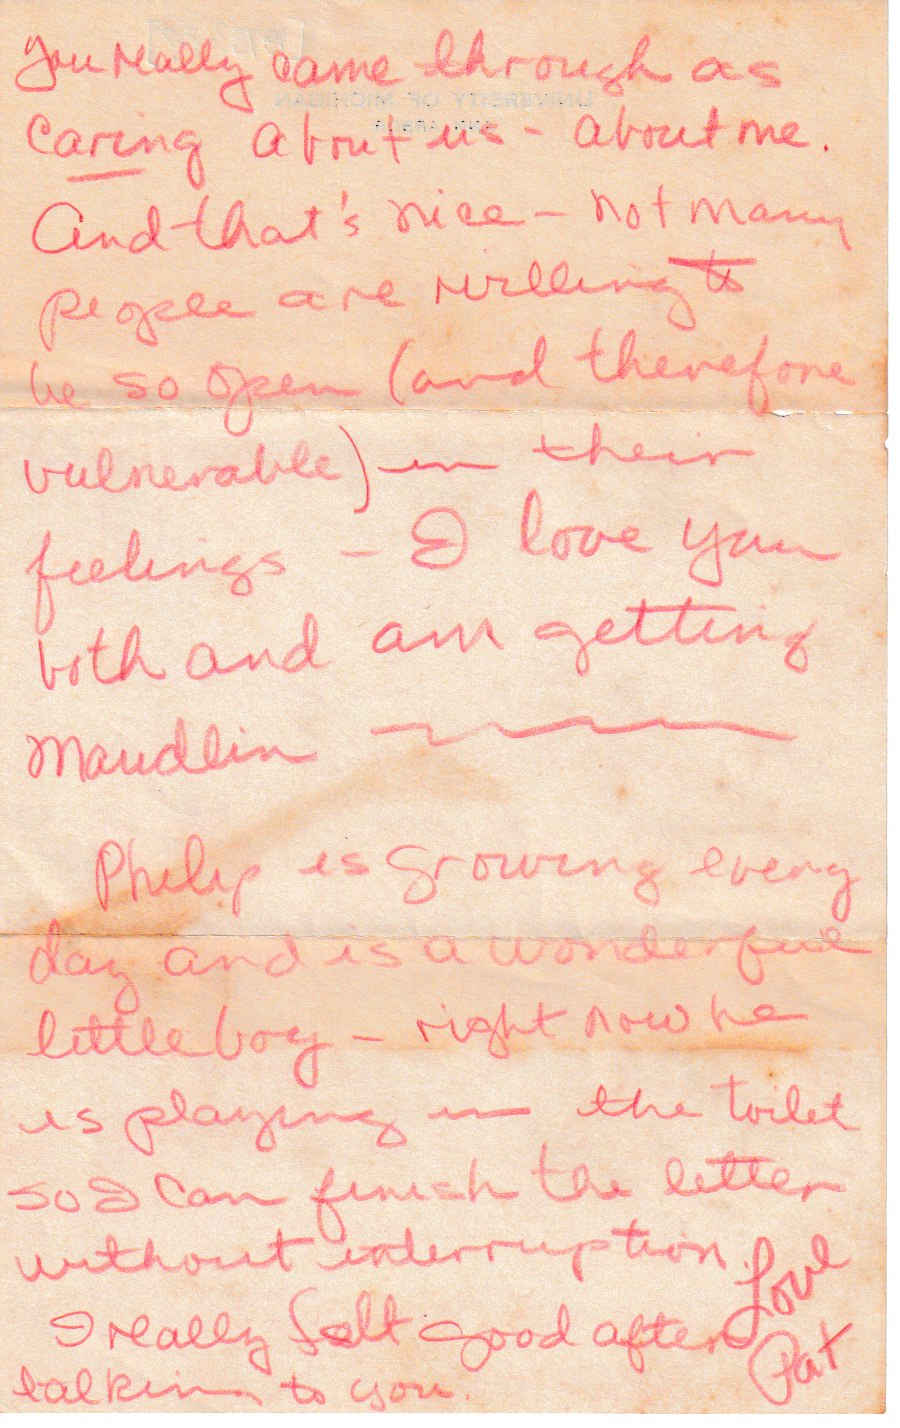 You really came through as
UNIVERSITY OF MICHIGAN
ANN ARBOR
caring about us - about me.
And that's nice - not many
people are willing to
be so open (and therefore
vulnerable) in their
feelings - I love you
both and am getting
Maudlin
Philip is growing every
day and is a wonderful
little boy - right now he
is playing in the toilet
so I can finish the letter
without interruption.
I really felt good after
talking to you.
Love
Pat